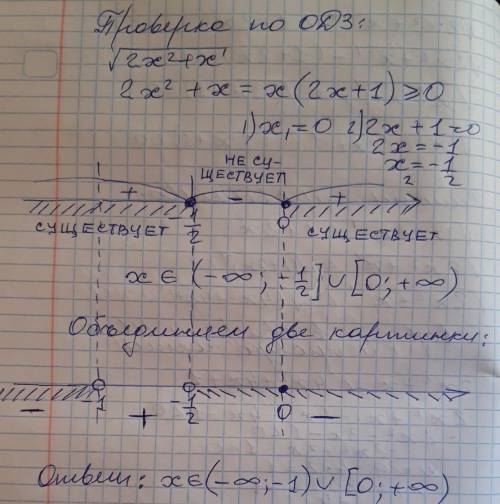 Проверка по ОДЗ:
√2x²+x
2x² + x = x(2x+1) ≥ 0
1) x₁ = 0 2) 2x + 1 = 0
2x = -1
x₂ = -1/2
НЕ СУ-
ЩЕСТВУЕТ
+ - +
СУЩЕСТВУЕТ -1/2 0 СУЩЕСТВУЕТ
x ∈ (-∞; -1/2] ∪ [0; +∞)
Объединяем две картинки:
- -1 + -1/2 0 -
Ответ: x ∈ (-∞; -1) ∪ [0; +∞)